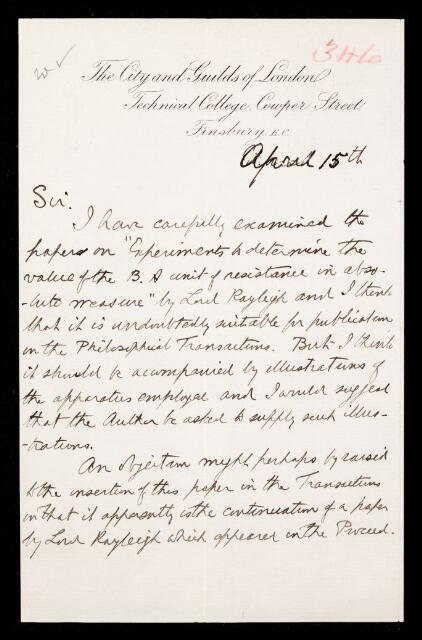 346
The City and Guilds of London
Technical College, Cowper Street
Finsbury, E.C.
April 15th
Sir.
I have carefully examined the
paper on "Experiments to determine the
value of the B. A unit of resistance in abso-
-lute measure" by Lord Rayleigh and I think
that it is undoubtedly suitable for publication
in the Philosophical Transactions. But I think
it should be acompanied by illustrations of
the apparatus employed and I would suggest
that the Author be asked to supply such illus-
-trations.
An objection might perhaps be raised
to the insertion of this paper in the Transactions
in that it apparently is the continuation of a paper
by Lord Rayleigh which appeared in the Proceed.